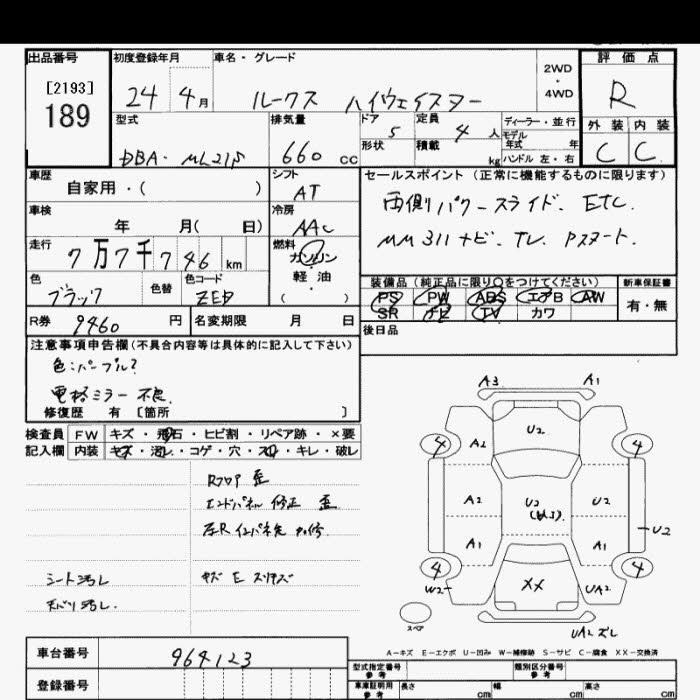 出品番号 初度登録年月 車名・グレード 評価点
[2193]
189
24年 4月 ルークス ハイウェイスター 2WD・4WD R
型式 排気量 ドア 5 定員 4人 ディーラー・並行 外装 内装
DBA-ML21S 660 cc 形状 積載 kg モデル年式 年 ハンドル 左・右 C C
車歴 シフト セールスポイント(正常に機能するものに限ります)
自家用・( ) AT 両側パワースライド、ETC、
車検 冷房
年 月( 日) AAC MM311ナビ、TV、Pスタート、
走行 燃料
7万7千746km ガソリン
軽・油
( )
色 色替 色コード 装備品(純正品に限り○をつけてください) 新車保証書
ブラック ZED PS PW ABS エアB AW 有・無
SR ナビ TV カワ
R券 9460円 名変期限 月 日 後日品
注意事項申告欄(不具合内容等は具体的に記入して下さい)
色:パープル?
電格ミラー不良、
修復歴 有 [箇所 ]
検査員 FW キズ・飛石・ヒビ割・リペア跡・×要
記入欄 内装 キズ・汚れ・コゲ・穴・スレ・キレ・破レ
Rフロア 歪
エンドパネル 修正 歪
左Rインパネ先
シート汚レ キズ E スリキズ
天バリ汚レ、
A3 A1
4 A2 U2 4
A2 U2 U2
U2
A1 A1
4 XX 4
W2 UA2
スペア
UA2 ズレ
A-キズ E-エクボ U-凹み W-補修跡 S-サビ C-腐食 XX-交換済
車台番号 964123
登録番号
型式指定番号 参考 類別区分番号 参考
車庫証明用 参考 長さ cm 幅 cm 高さ cm